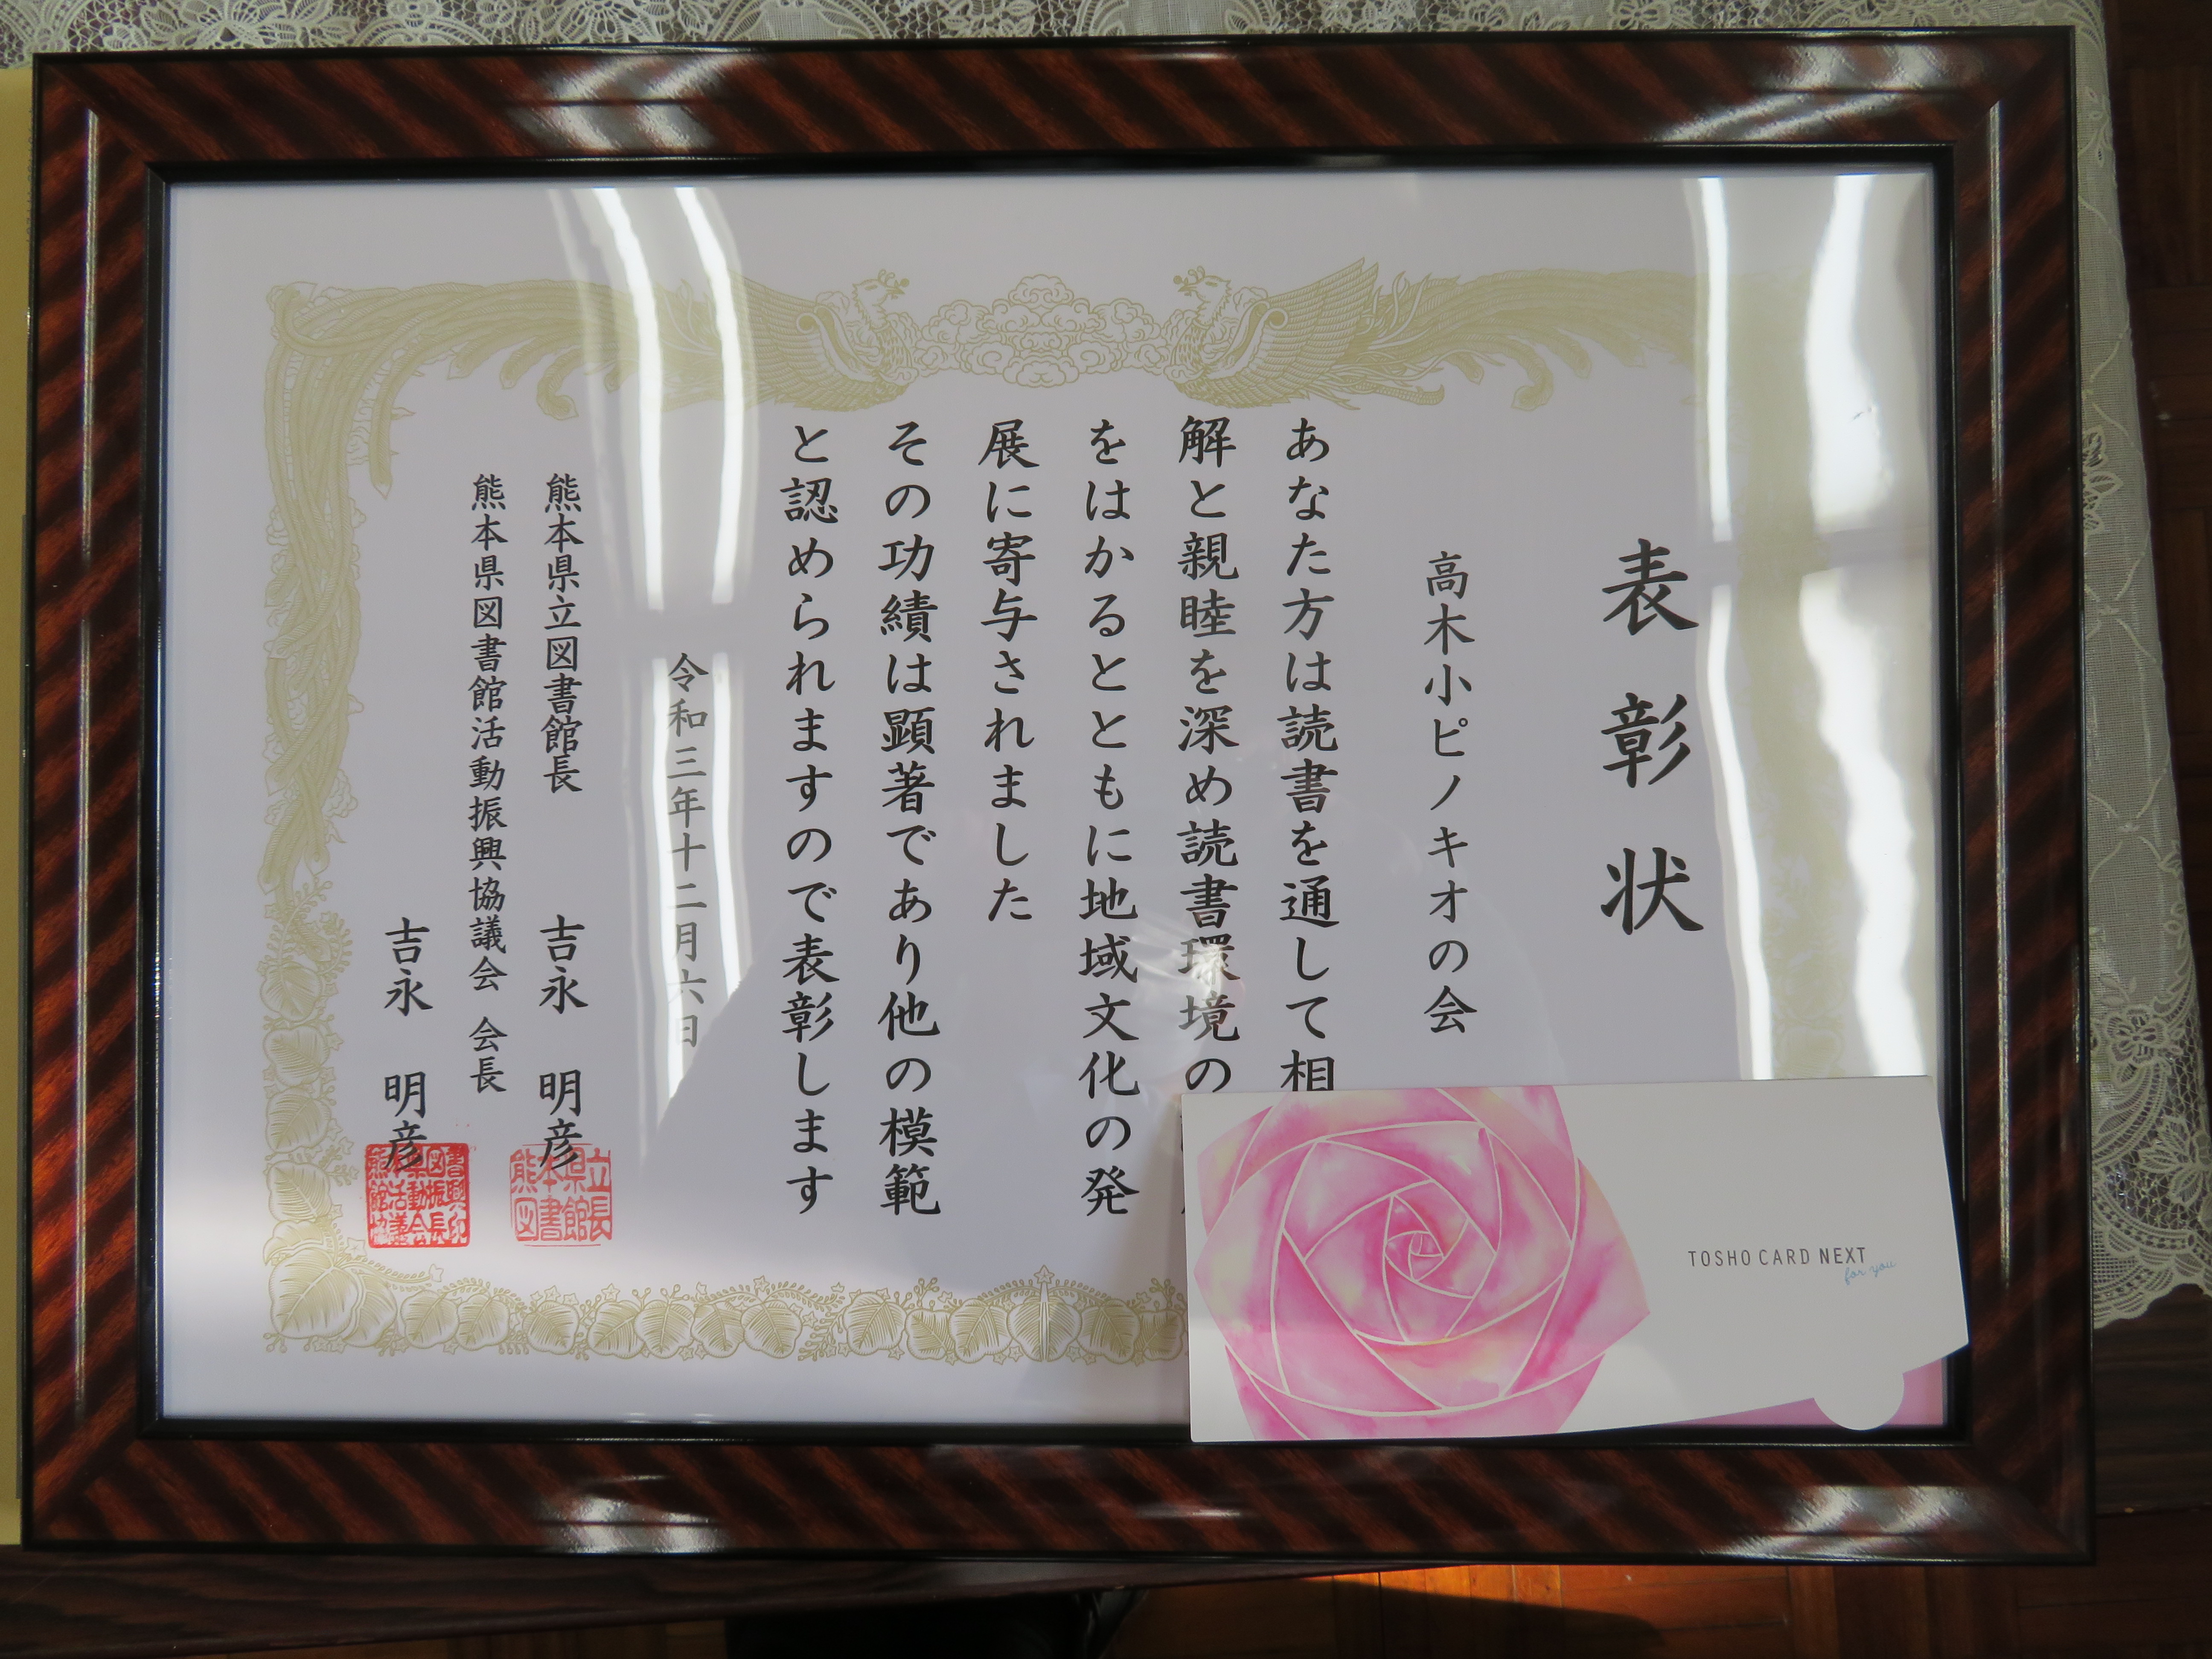 表彰状
高木小ピノキオの会
あなた方は読書を通して相
解と親睦を深め読書環境の
をはかるとともに地域文化の発
展に寄与されました
その功績は顕著であり他の模範
と認められますので表彰します
令和三年十二月六日
熊本県立図書館長 吉永 明彦
熊本県図書館活動振興協議会 会長
吉永 明彦
熊本県立
図書館長
TOSHO CARD NEXT
for you